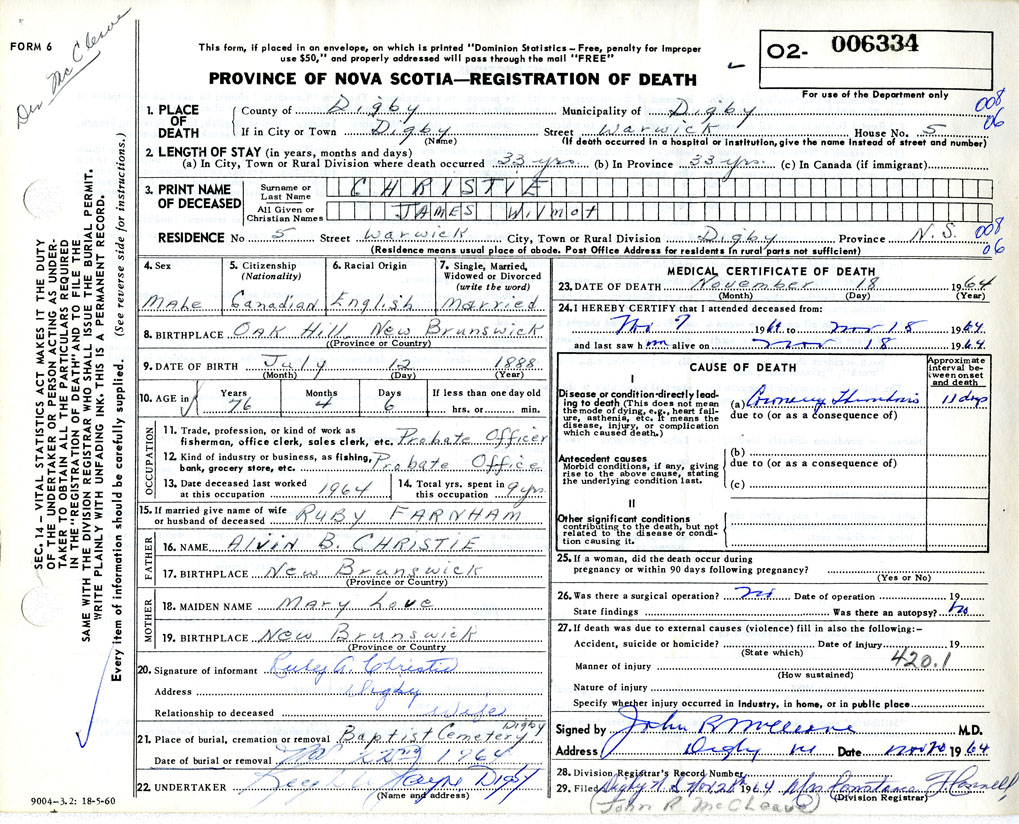 FORM 6
Dr. McCleave
This form, if placed in an envelope, on which is printed "Dominion Statistics – Free, penalty for improper
use $50," and properly addressed will pass through the mail "FREE"
PROVINCE OF NOVA SCOTIA—REGISTRATION OF DEATH
02- 006334
For use of the Department only
008
06
SEC. 14 – VITAL STATISTICS ACT MAKES IT THE DUTY
OF THE UNDERTAKER OR PERSON ACTING AS UNDER-
TAKER TO OBTAIN ALL THE PARTICULARS REQUIRED
IN THE "REGISTRATION OF DEATH" AND TO FILE THE
SAME WITH THE DIVISION REGISTRAR WHO SHALL ISSUE THE BURIAL PERMIT.
WRITE PLAINLY WITH UNFADING INK. THIS IS A PERMANENT RECORD.
Every item of information should be carefully supplied. (See reverse side for instructions.)
1. PLACE OF DEATH
County of Digby Municipality of Digby
If in City or Town Digby Street Warwick House No. 5
(Name) (If death occurred in a hospital or institution, give the name instead of street and number)
2. LENGTH OF STAY (in years, months and days)
(a) In City, Town or Rural Division where death occurred 33 yrs. (b) In Province 33 yrs. (c) In Canada (if immigrant)
3. PRINT NAME OF DECEASED
Surname or Last Name CHRISTIE
All Given or Christian Names JAMES Wilmot
RESIDENCE No 5 Street Warwick City, Town or Rural Division Digby Province N.S. 008
06
(Residence means usual place of abode. Post Office Address for residents in rural parts not sufficient)
4. Sex Male
5. Citizenship (Nationality) Canadian
6. Racial Origin English
7. Single, Married, Widowed or Divorced (write the word) Married
8. BIRTHPLACE Oak Hill, New Brunswick
(Province or Country)
9. DATE OF BIRTH July 12 1888
(Month) (Day) (Year)
10. AGE in Years 76 Months 4 Days 6 If less than one day old hrs. or min.
OCCUPATION
11. Trade, profession, or kind of work as fisherman, office clerk, sales clerk, etc. Probate Officer
12. Kind of industry or business, as fishing, bank, grocery store, etc. Probate Office
13. Date deceased last worked at this occupation 1964
14. Total yrs. spent in this occupation 9 yrs
15. If married give name of wife or husband of deceased RUBY FARNHAM
FATHER
16. NAME Alvin B. CHRISTIE
17. BIRTHPLACE New Brunswick
(Province or Country)
MOTHER
18. MAIDEN NAME Mary Love
19. BIRTHPLACE New Brunswick
(Province or Country
20. Signature of informant Ruby A. Christie
Address Digby
Relationship to deceased Wife
21. Place of burial, cremation or removal Baptist Cemetery Digby
Date of burial or removal 22nd 1964
22. UNDERTAKER Payne Digby
(Name and address)
9004–3.2: 18-5-60
MEDICAL CERTIFICATE OF DEATH
23. DATE OF DEATH November 18 1964
(Month) (Day) (Year)
24. I HEREBY CERTIFY that I attended deceased from:
Nov 7 1964 to Nov 18 1964
and last saw him alive on Nov 18 1964
CAUSE OF DEATH
Approximate interval between onset and death
I
Disease or condition directly leading to death (This does not mean the mode of dying, e.g., heart failure, asthenia, etc. It means the disease, injury, or complication which caused death.)
(a) Coronary Thrombosis 11 days
due to (or as a consequence of)
Antecedent causes
Morbid conditions, if any, giving rise to the above cause, stating the underlying condition last.
(b)
due to (or as a consequence of)
(c)
II
Other significant conditions
contributing to the death, but not related to the disease or condition causing it.
25. If a woman, did the death occur during
pregnancy or within 90 days following pregnancy?
(Yes or No)
26. Was there a surgical operation? No Date of operation 19
State findings Was there an autopsy? No
27. If death was due to external causes (violence) fill in also the following:–
Accident, suicide or homicide? Date of injury 19
(State which) 420.1
Manner of injury
(How sustained)
Nature of injury
Specify whether injury occurred in Industry, in home, or in public place
Signed by John R McCleave M.D.
Address Digby NS Date Nov 20 1964
28. Division Registrar's Record Number
29. Filed Digby N S Nov 26th 1964 Mrs Constance
(John R. McCleave) (Division Registrar)